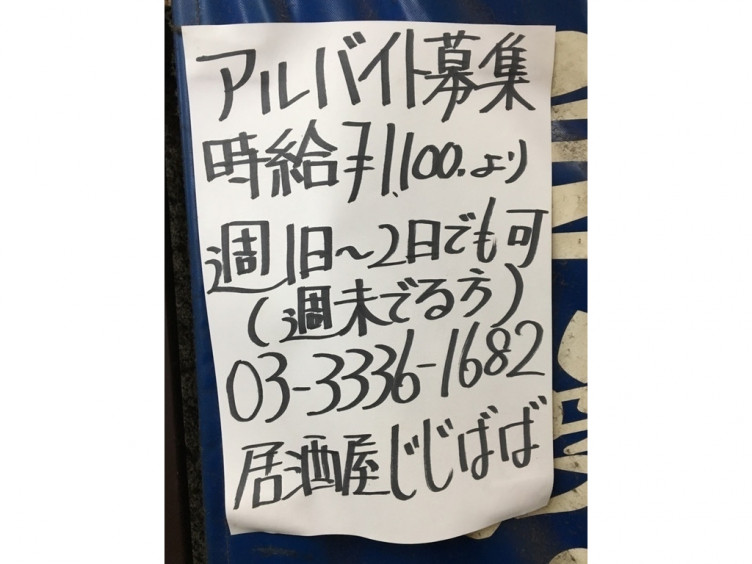 アルバイト募集
時給¥1,100.より
週1日〜2日でも可
(週末でる方)
03-3336-1682
居酒屋じじばば